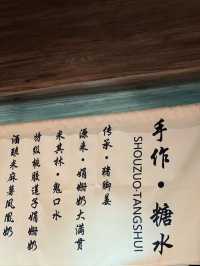 手作·糖水
SHOUZUO-TANGSHUI
传承·猪脚姜
源来·娟姗奶大满贯
米其林·鬼口水
特级桃胶莲子娟姗奶
酒酿米麻薯凤凰奶